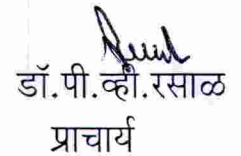 डॉ.पी.व्ही.रसाळ
प्राचार्य